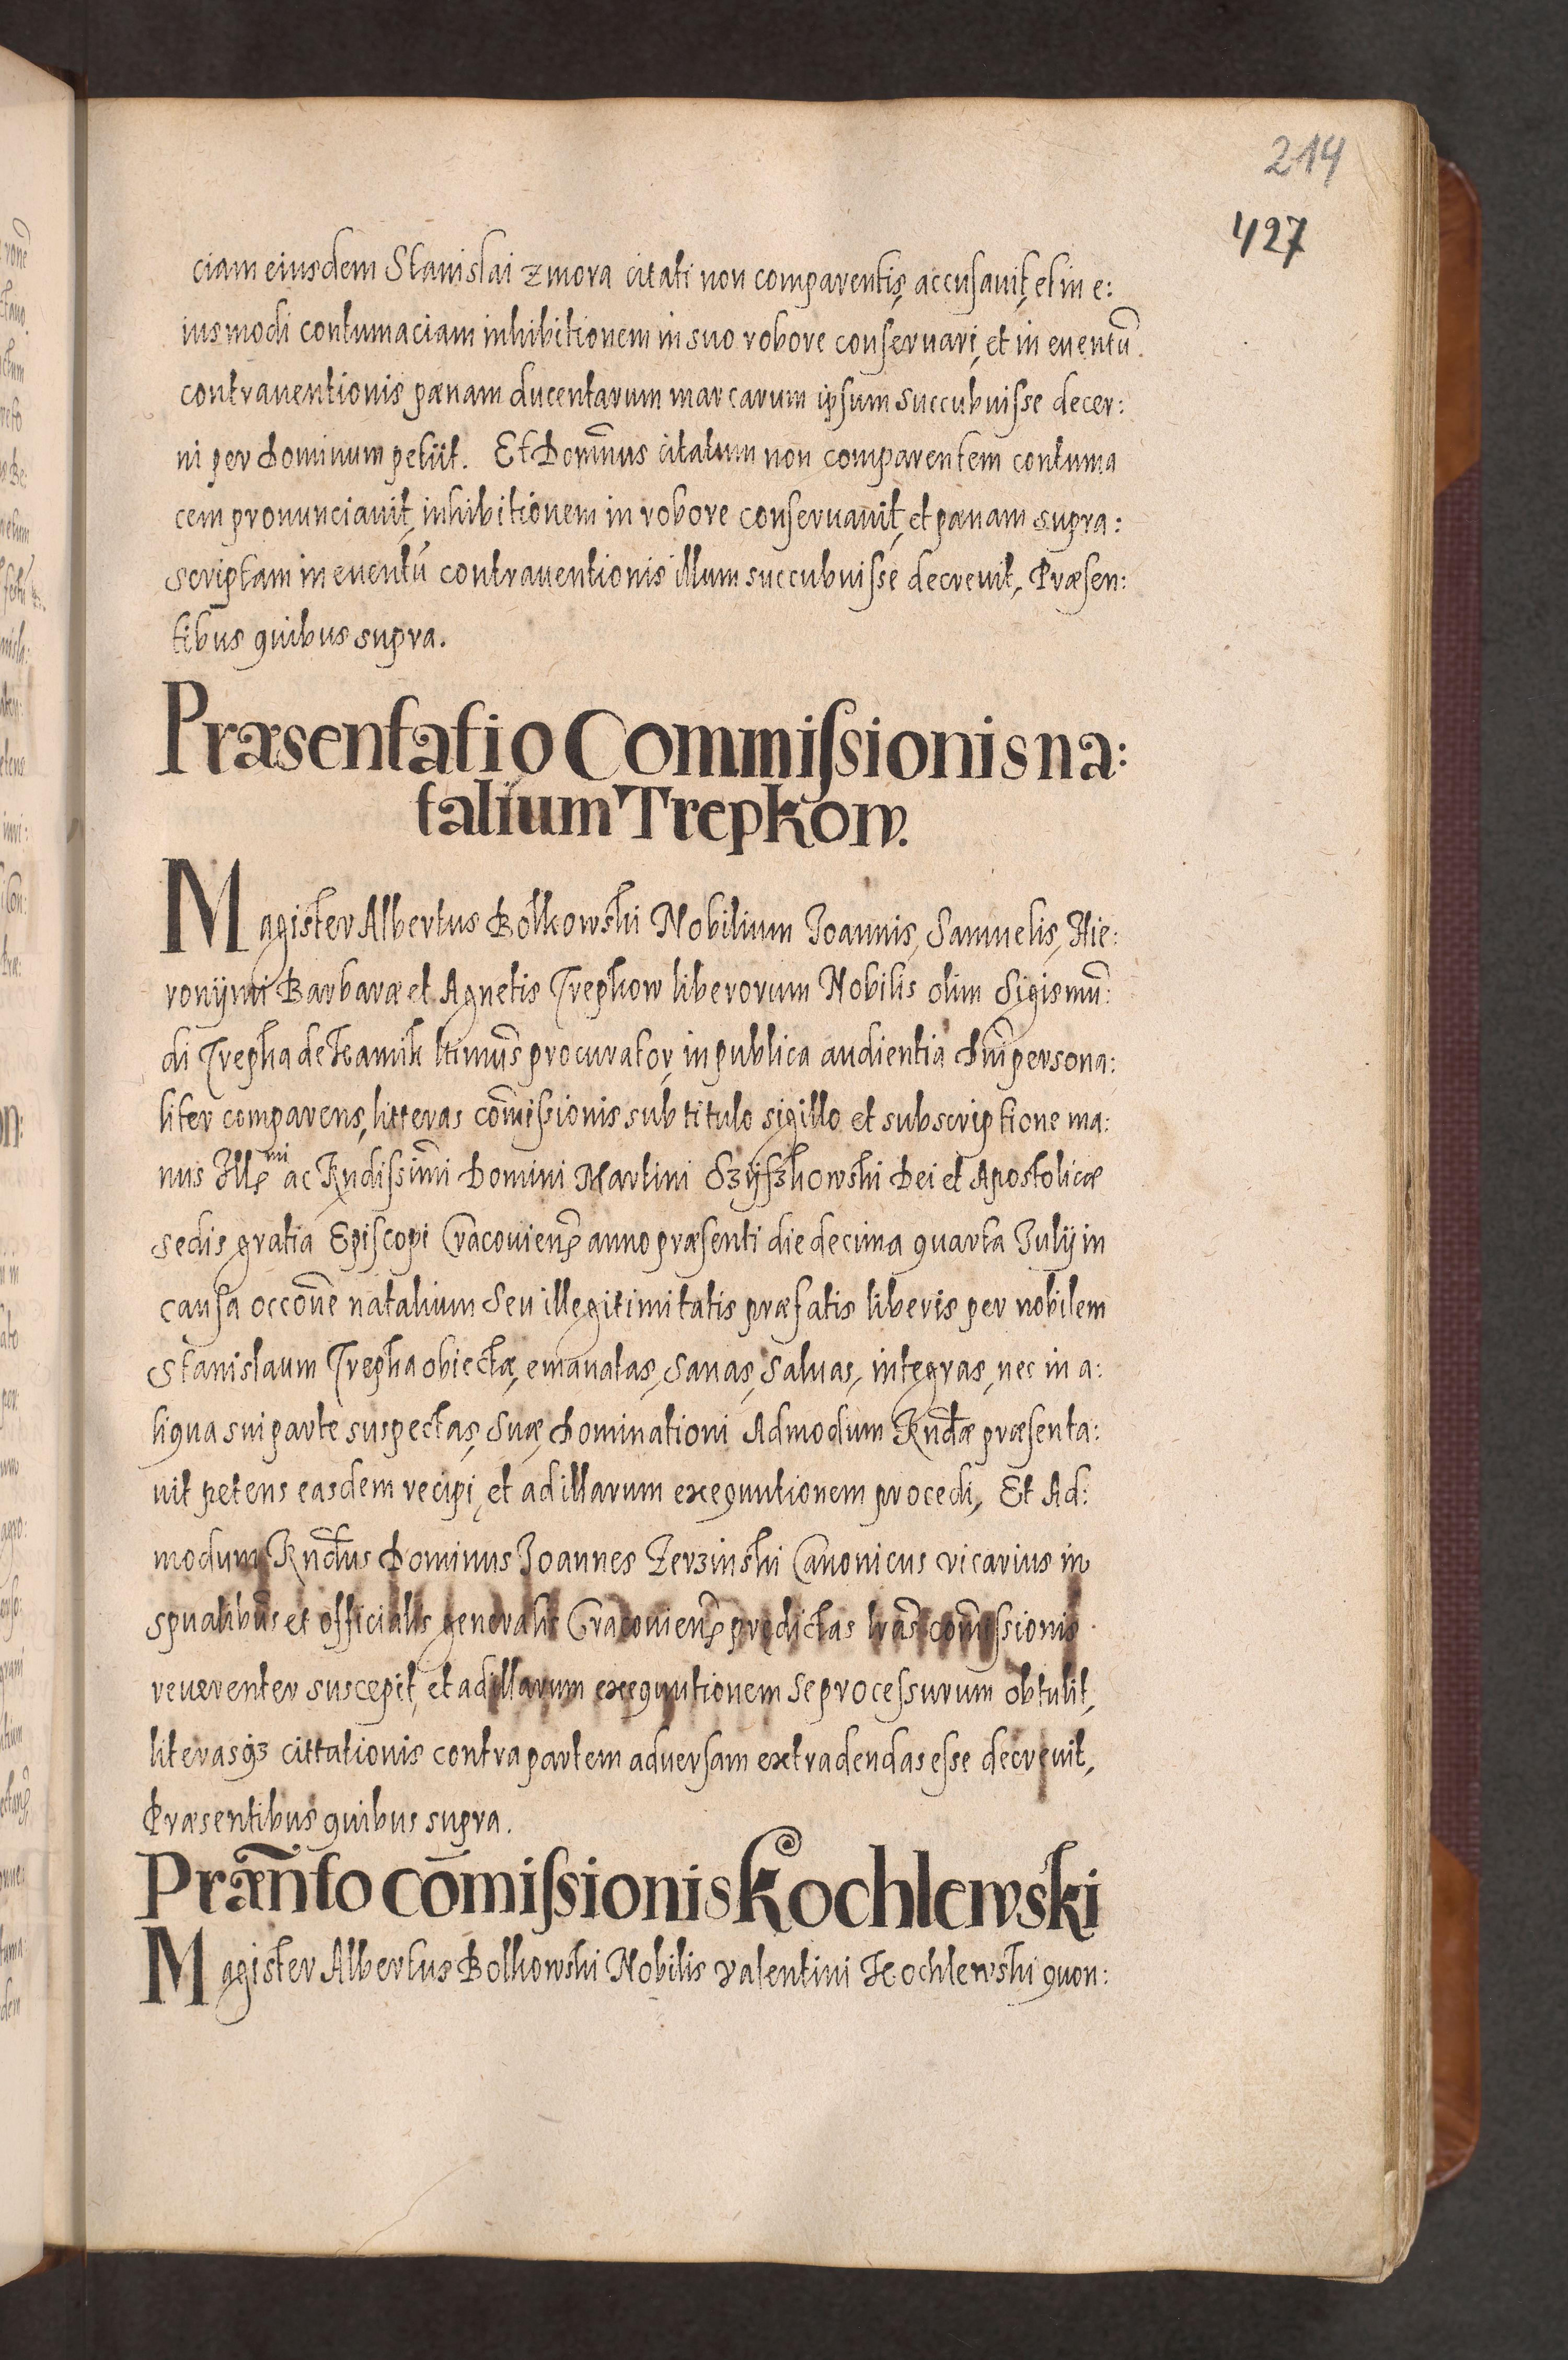 214
427
ciam eiusdem Stanislai Zmora citati non comparentis, accusauit, et in e:
iusmodi contumaciam inhibitionem in suo robore conseruari, et in euentũ
contrauentionis pænam ducentarum marcarum ipsum succubuisse decer:
ni per Dominum petiit. Et Domĩnus citatum non comparentem contuma
cem pronunciauit, inhibitionem in robore conseruauit, et pænam supra:
scriptam in euentũ contrauentionis illum succubuisse decreuit, Præsen:
tibus quibus supra.
Præsentatio Commissionis na:
talium Trepkow.
Magister Albertus Bolkowski Nobilium Joannis, Samuelis, Hie:
ronÿmi Barbaræ et Agnetis Trepkow liberorum Nobilis olim Sigismũ:
di Trepka de Kamik ltimũs procurator, in publica audientia Dñi persona:
liter comparens, litteras com̃issionis sub titulo sigillo et subscriptione ma:
nus Illmi ac Rndissim̃i Domini Martini Szÿszkowski Dei et Apostolicæ
sedis gratia Episcopi Cracouien̄ anno præsenti die decima quarta Julÿ in
causa occoñe natalium Seu illegitimitatis præfatis liberis per nobilem
Stanislaum Trepka obiectæ, emanatas, Sanas, Saluas, integras, nec in a:
liqua sui parte suspectas, Suæ Dominationi Admodum Rñdæ præsenta:
uit petens easdem recipi, et ad illarum exequutionem procedi, Et Ad:
modum Rñdus Dominus Joannes Zerzinski Canonicus vicarius in
spualibũs et officialis generalis Cracouien̄ prędictas lrãs com̃issionis
reuerenter suscepit, et ad illarum exequutionem se processurum obtulit,
literasq3 cittationis contra partem aduersam extradendas esse decreuit,
Præsentibus quibus supra.
Præñto com̃issionis Kochlewski
Magister Albertus Bolkowski Nobilis Valentini Kochlewski quon: